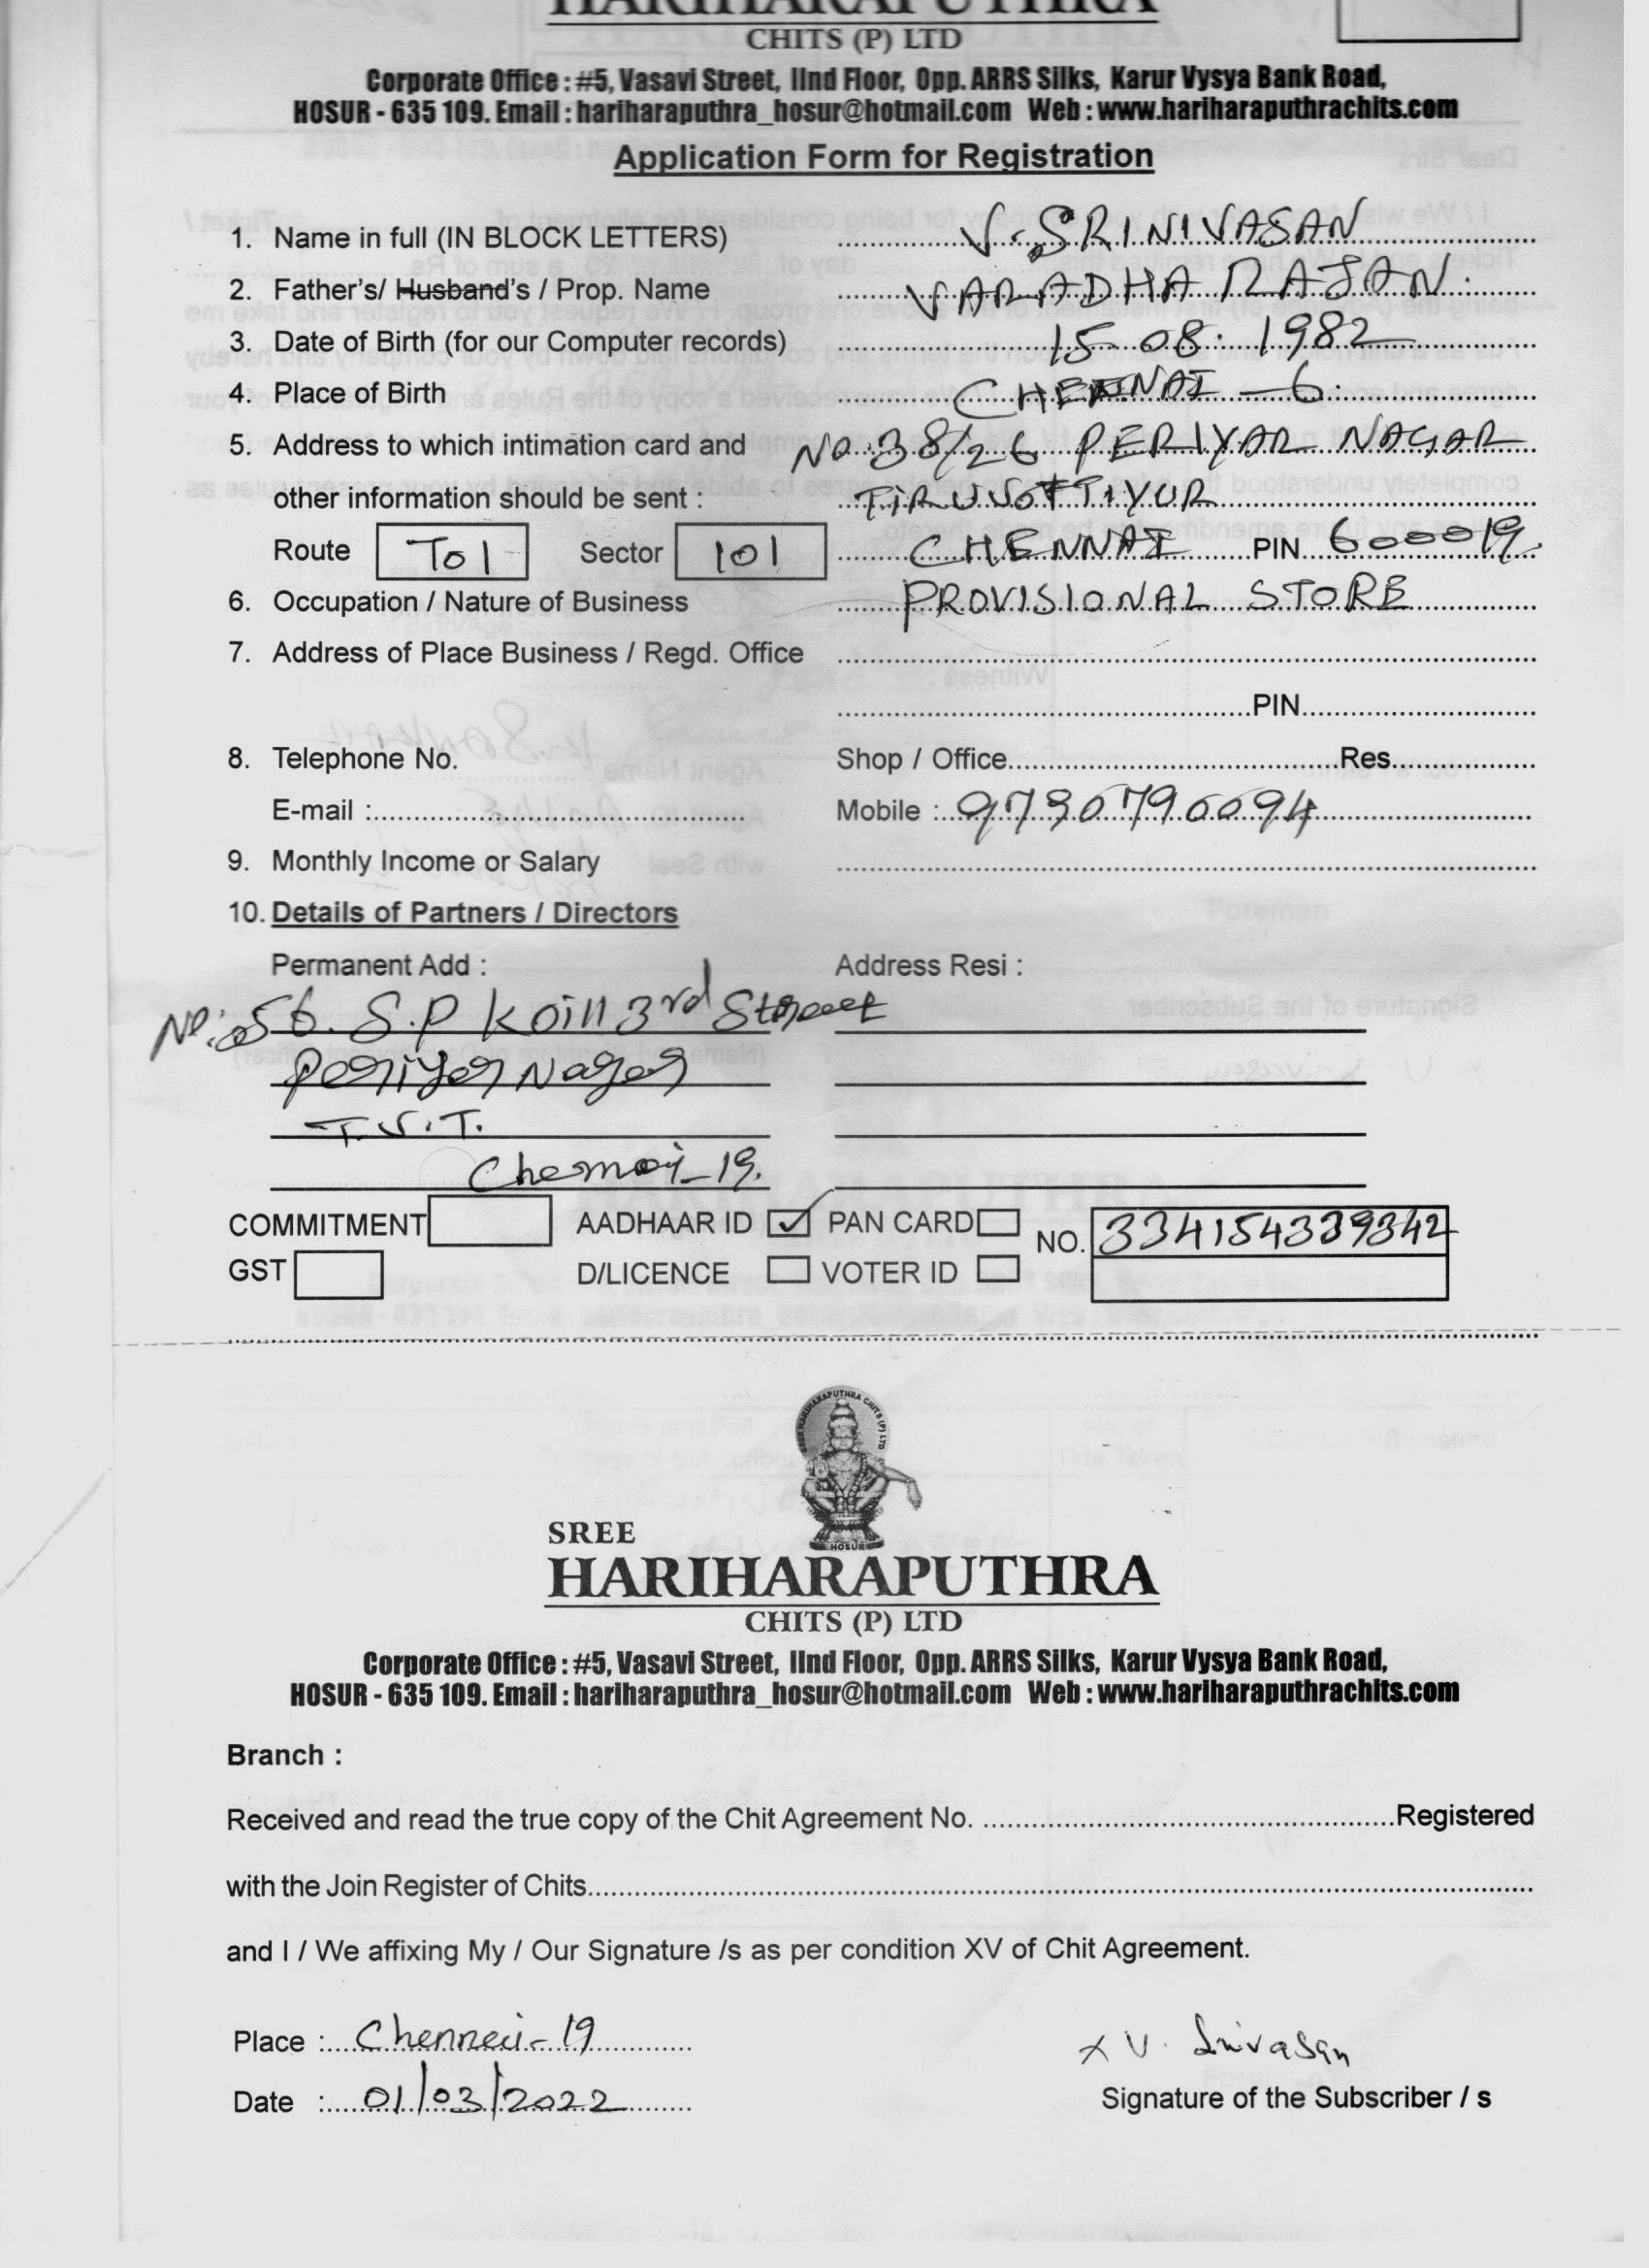 HARIHARAPUTHRA
CHITS (P) LTD
Corporate Office : #5, Vasavi Street, IInd Floor, Opp. ARRS Silks, Karur Vysya Bank Road,
HOSUR - 635 109. Email : hariharaputhra_hosur@hotmail.com Web : www.hariharaputhrachits.com
Application Form for Registration
1. Name in full (IN BLOCK LETTERS) V. SRINIVASAN
2. Father's/ Husband's / Prop. Name VARADHARAJAN.
3. Date of Birth (for our Computer records) 15-08-1982
4. Place of Birth CHENNAI - 6.
5. Address to which intimation card and No:38/26 PERIYAR NAGAR
other information should be sent : TIRUVOTTIYUR
Route T01 Sector 101 CHENNAI PIN 600019.
6. Occupation / Nature of Business PROVISIONAL STORE
7. Address of Place Business / Regd. Office
PIN
8. Telephone No. Shop / Office Res.
E-mail : Mobile : 9790790094
9. Monthly Income or Salary
10. Details of Partners / Directors
Permanent Add : Address Resi :
No: 56. S.P Koill 3rd Street
Periyar Nagar
T.V.T.
Chennai-19.
COMMITMENT AADHAAR ID ✓ PAN CARD NO. 334154339342
GST D/LICENCE VOTER ID
SREE HARIHARAPUTHRA CHITS (P) LTD
HOSUR
SREE
HARIHARAPUTHRA
CHITS (P) LTD
Corporate Office : #5, Vasavi Street, IInd Floor, Opp. ARRS Silks, Karur Vysya Bank Road,
HOSUR - 635 109. Email : hariharaputhra_hosur@hotmail.com Web : www.hariharaputhrachits.com
Branch :
Received and read the true copy of the Chit Agreement No. Registered
with the Join Register of Chits
and I / We affixing My / Our Signature /s as per condition XV of Chit Agreement.
Place : Chennai-19
Date : 01/03/2022
x V. Srivasan
Signature of the Subscriber / s